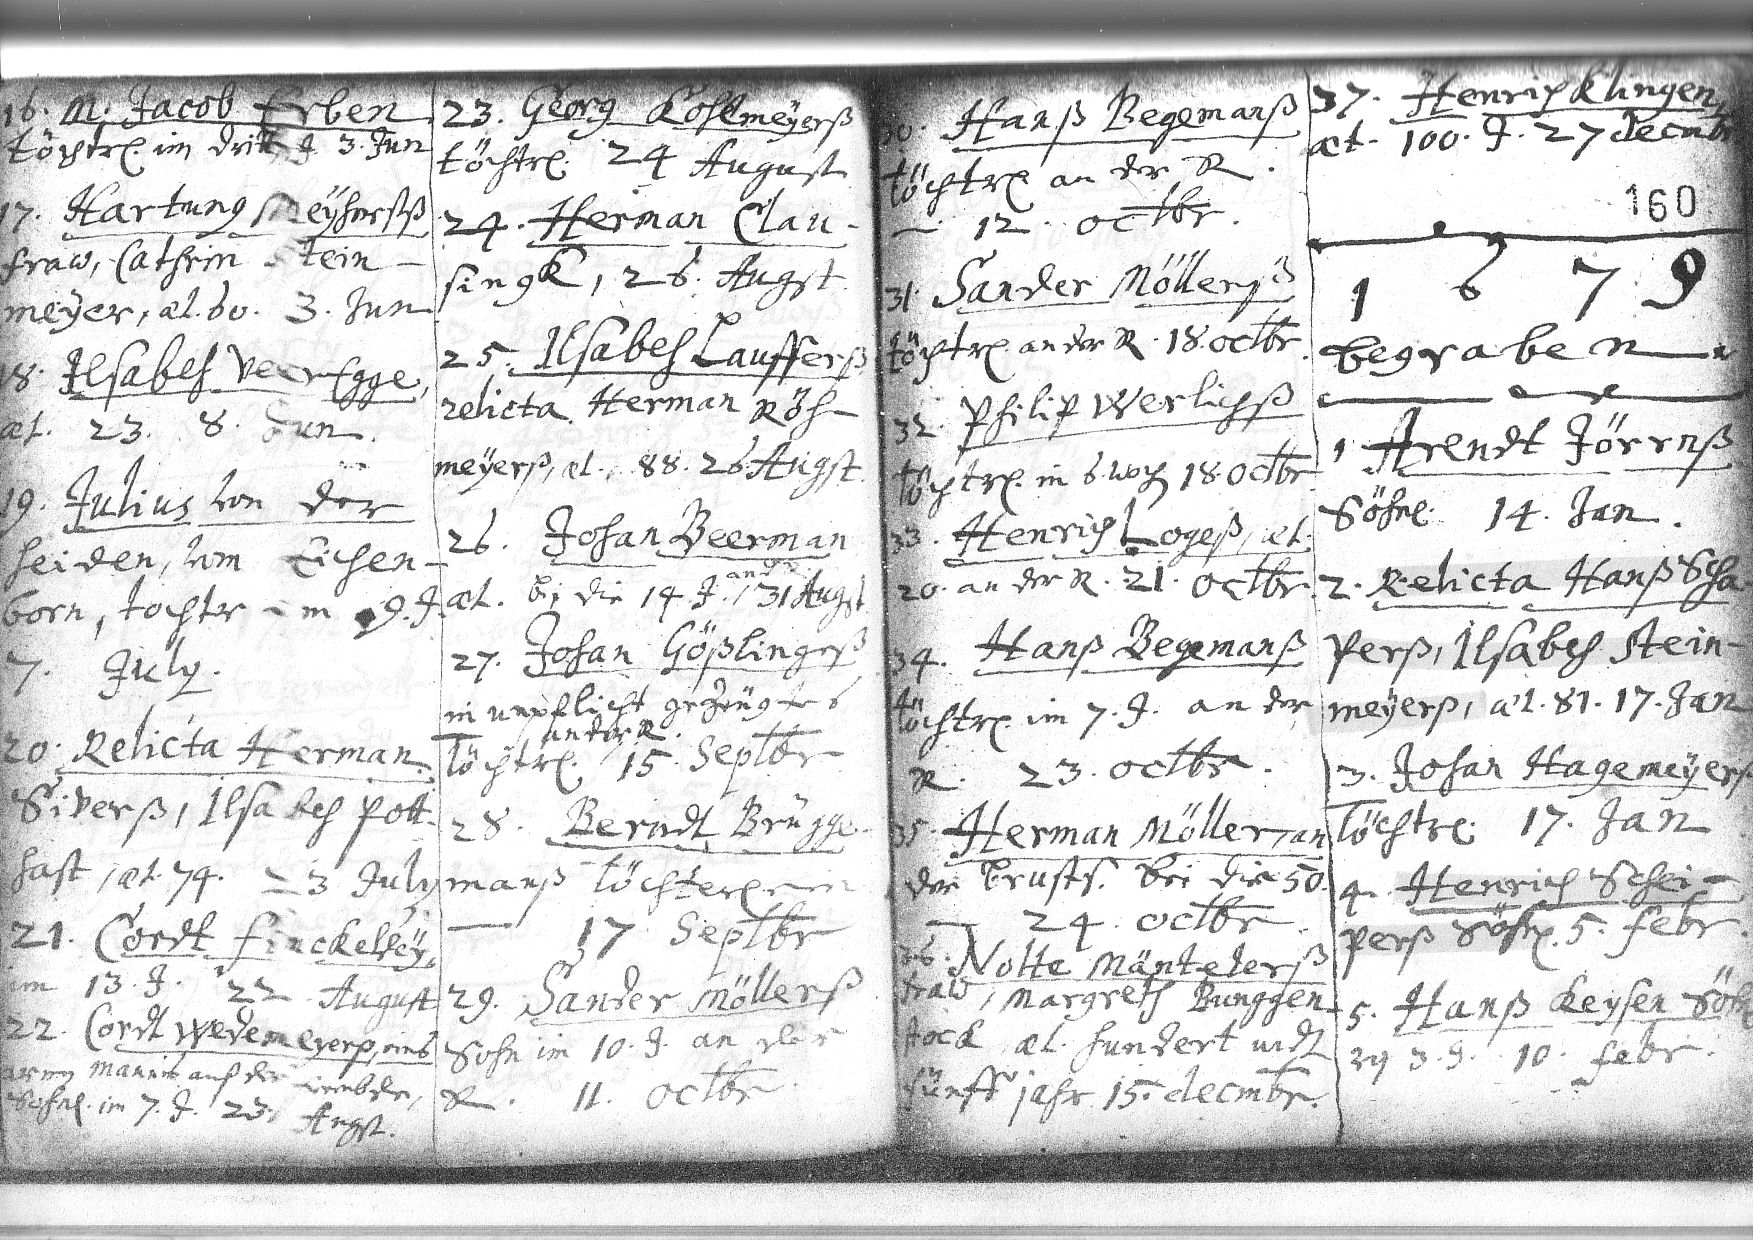 16. M. Jacob Erben
töchtrl. im dritt. J. 3. Jun
17. Hartung Meÿhersß
fraw, Cathrin Stein-
meÿer, æt. 60. 3. Jun
18. Ilsabeh Veer Egge,
æt. 23. 8. Jun.
19. Julius von der
heiden, vom Eichen-
born, tochtr im 9. J.
7. July.
20. Relicta Herman
Siverß, Ilsabeh Pott-
hast, æt. 74. 23 July
21. Cordt Finckelveÿ,
im 13. J. 22 August
22. Cordt Wedemeyerß, eins
armen mannes auf der
Söhnl. im 7. J. 23. Augst.
23. Georg Kohlmeÿerß
töchtrl. 24 August
24. Herman Clau-
singk, 26. Augst.
25. Ilsabeh Laufferß
relicta Herman Röh-
meÿerß, æt. 88. 26 Augst.
26. Johan Beerman
æt. bei die 14 J. an der 31 Augst
27. Johan Gößlingß
in unpflicht gezeugtes
an der R.
Töchtrl. 15 Septbr
28. Berndt Brügge-
manß töchterl
17 Septbr
29. Sander Möllerß
Sohn im 10. J. an der
R. 11. octbr.
30. Hanß Begemanß
töchtrl an der R.
12. octbr.
31. Sander Möllerß
töchtrl. an der R. 18. octbr.
32. Philip Werlichß
töchtrl. in 6. woch 18. octbr
33. Henrich Logeß, æt.
20. an der R. 21. octbr.
34. Hanß Begemanß
töchtrl. im 7. J. an der
R. 23. octbr.
35. Herman Möller, an
der brusts. bei die 50.
24. octbr.
36. Nolte Mäntelerß
fraw, Margreth Bunggen-
stock æt. hundert undt
fünff jahr 15. decmbr.
37. Henrich Klingen,
æt. 100. J. 27 decmbr
160
1679
begraben
1 Arendt Jörrnß
Söhnl. 14. Jan.
2. Relicta Hanß Scha-
perß, Ilsabeh Stein-
meÿerß, æt. 81. 17. Jan
3. Johan Hagemeÿerß
Töchtrl. 17. Jan
4. Henrich Schei-
perß Söhnl. 5. febr.
5. Hanß Keysen Söhnl
3. J. 10. febr.